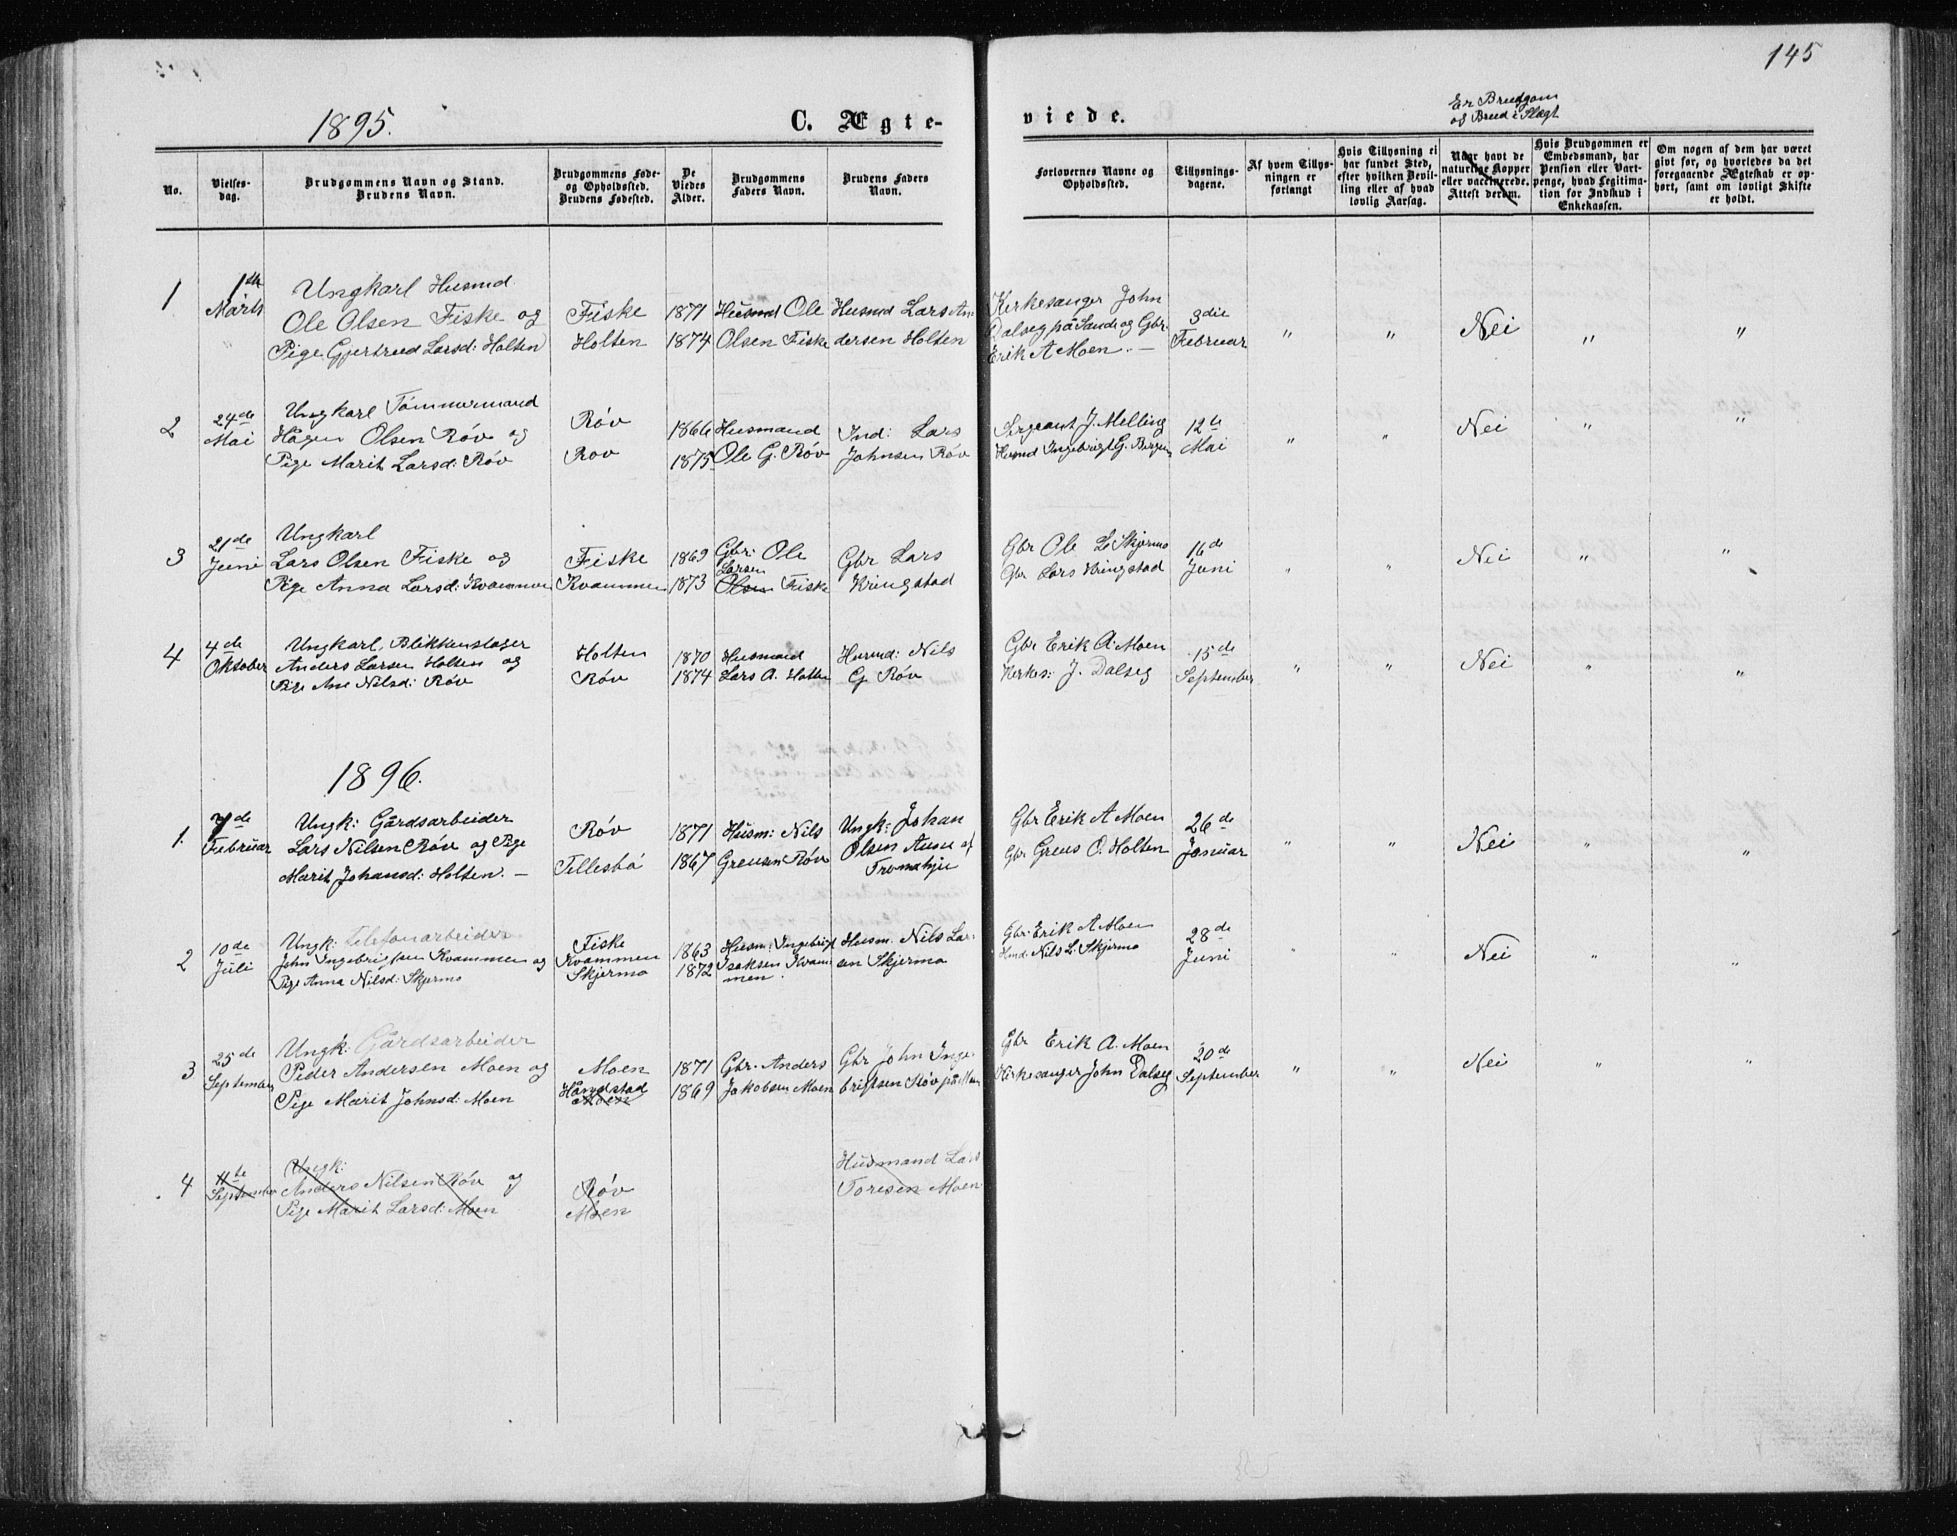 145
1895.
C. Ægte-
viede.
Er Brudgom
og Brud i Slægt
No.
Vielses-
dag.
Brudgommens Navn og Stand.
Brudens Navn.
Brudgommens Føde-
og Opholdssted.
Brudens Fødested.
De
Viedes
Alder.
Brudgommens
Faders Navn.
Brudens Faders
Navn.
Forlovernes Navne og
Opholdssted.
Tillysnings-
dagene.
Af hvem Tillys-
ningen er
forlangt
Hvis Tillysning ei
har fundet Sted,
efter hvilken Bevil-
ling eller af hvad
lovlig Aarsag.
Naar havt de
naturlige Kopper
eller vaccinerede.
Attest derom.
Hvis Brudgommen er
Embedsmand, har
Pension eller Vart-
penge, hvad Legitima-
tion for Indskud i
Enkekassen.
Om nogen af dem har været
givt før, og hvorledes da det
foregaaende Ægteskab er op-
hørt, samt om lovligt Skifte
er holdt.
1
1ste
Marts
Ungkarl Husmd.
Ole Olsen Fiske og
Pige Gjertrud Larsd: Holten
Fiske
Holten
1871
1874
Husmd Ole
Olsen Fiske
Husmd Lars An-
dersen Holten
Kirkesanger John
Dalseg på Sande og Gbr.
Erik A Moen. —
3die
Februar
" "
Nei
" "
2
24de
Mai
Ungkarl Tømmermand
Hågen Olsen Røv og
Pige Marit Larsd: Røv
Røv
Røv
1866
1875
Husmand
Ole G. Røv
Ind: Lars
Johnsen Røv
Sergeant J. Melling
Husmd Ingebrigt G. Bergem
12te
Mai
" "
Nei
" "
3
21de
Juni
Ungkarl
Lars Olsen Fiske og
Pige Anna Larsd: Kvammen
Fiske
Kvammen
1869
1873
Gbr: Ole
Larsen
Olsen Fiske
Gbr Lars
Kringstad
Gbr Ole L Skjermo
Gbr Lars Kringstad
16de
Juni
" "
Nei
" "
4
4de
Oktober
Ungkarl, Blikkenslager
Anders Larsen Holten og
Pige Ane Nilsd: Røv
Holten
Røv
1870
1874
Husmand
Lars A. Holten
Husmd: Nils
G. Røv
Gbr Erik A. Moen
Kirkes: J. Dalseg
15de
September
" "
Nei
" "
1896.
1.
7de
Februar
Ungk: Gårdsarbeider
Lars Nilsen Røv og Pige
Marit Johansd: Holten. —
Røv
Tillesbø
1871
1867
Husm: Nils
Grensen Røv
Ungk: Johan
Olsen Aune af
Gbr Erik A Moen
Gbr Grens O. Holten
26de
Januar
" "
Nei
" "
2
10de
Juli
Ungk: Telefonarbeider
John Ingebrigtsen Kvammen og
Pige Anna Nilsd: Skjermo
Fiske
Kvammen
Skjermo
1863
1872
Husm: Ingebrigt
Isaksen Kvam-
men.
Husm. Nils Lar-
sen Skjermo
Gbr: Erik A Moen
Hmd: Nils L. Skjermo
28de
Juni
" "
Nei
" "
3
25de
September
Ungk: Gårdsarbeider
Peder Andersen Moen og
Pige Marit Johnsd: Moen
Moen
Håndstad
Moen
1871
1869
Gbr. Anders
Jakobsen Moen
Gbr John Inge-
brigtsen Røv på Moen
Gbr Erik A. Moen
Kirkesanger John Dalseg
20de
September
" "
Nei
" "
4
11te
September
Ungk:
Anders Nilsen Røv og
Pige Marit Larsd: Moen
Røv
Moen
Husmand Lars
Toresen Moen